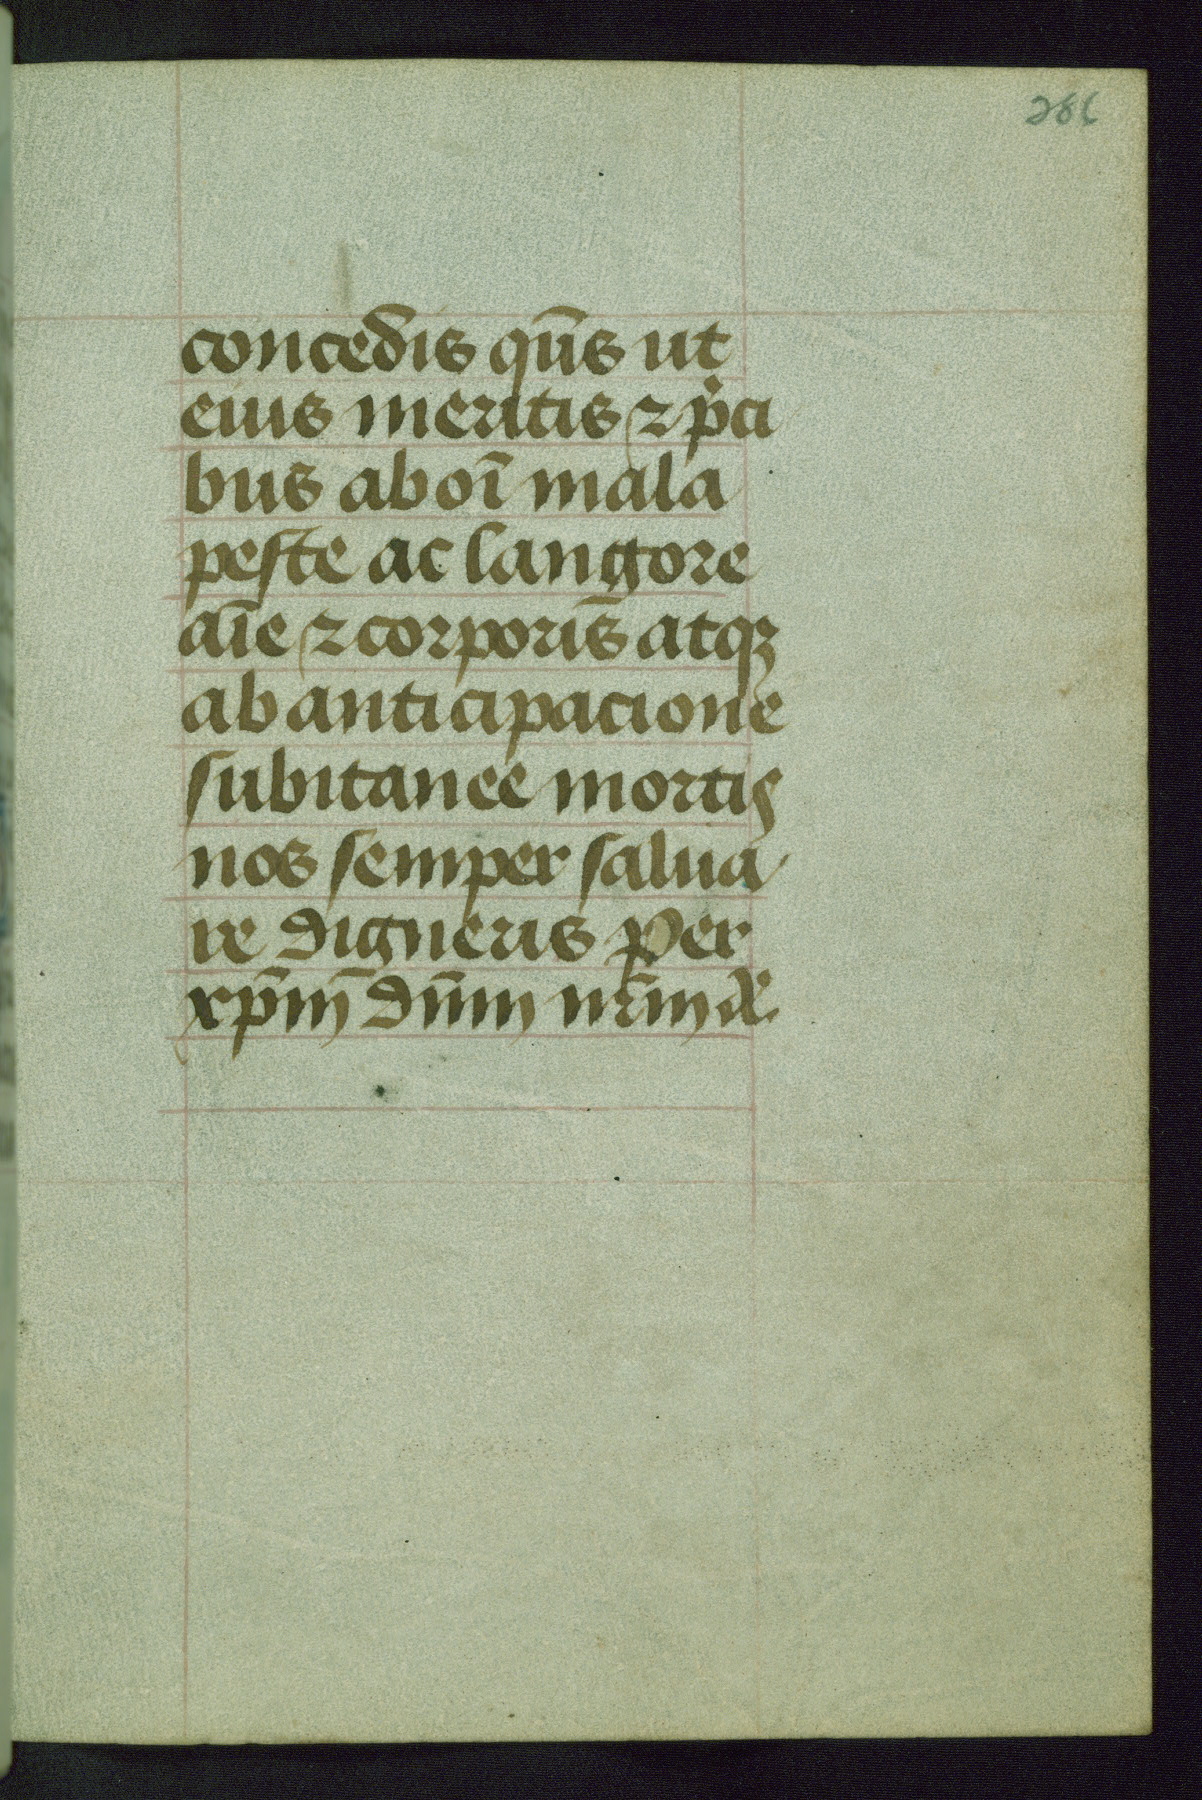 286
concedis qūs ut
eius meritis ⁊ p̾ci
bus ab oī mala
peste ac langore
aīe ⁊ corporis̄ atqꝫ
ab anticipacione
subitanee mortis
nos semper salua
re digneris Per
xp̄m dn̄m nr̄m